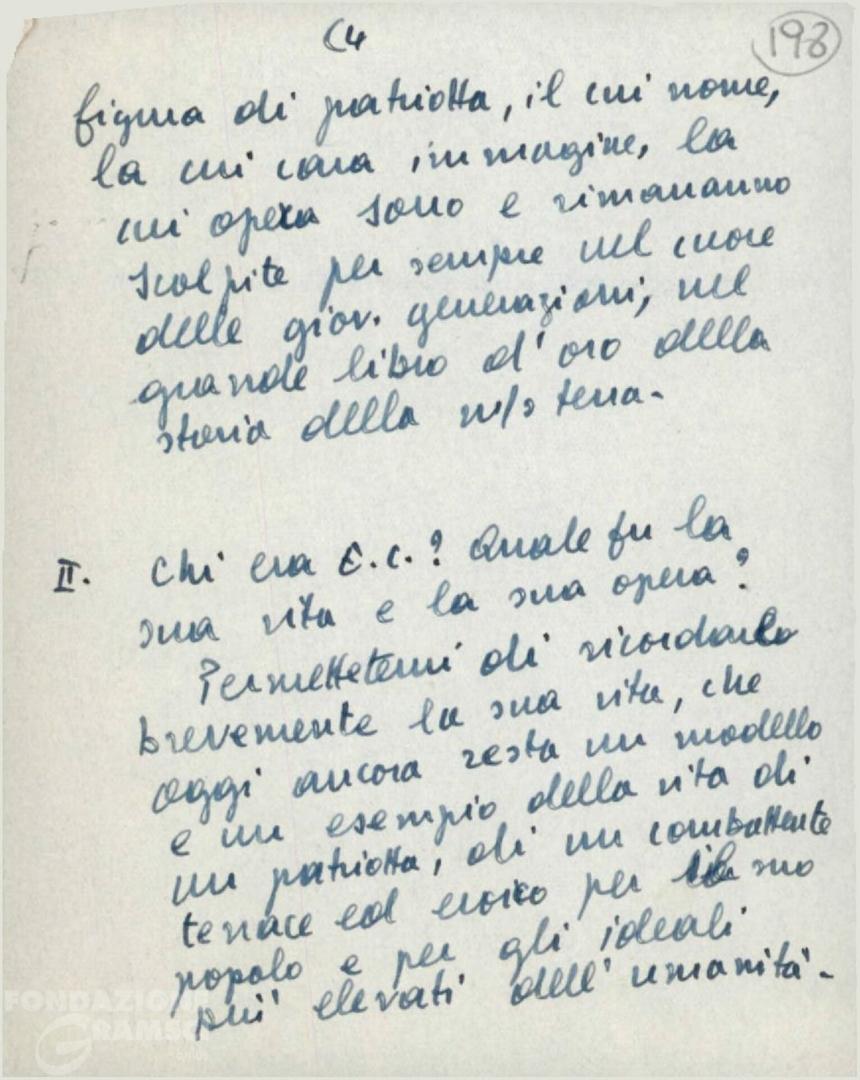 (4
198
figura di patriotta, il cui nome,
la cui cara immagine, la
cui opera sono e rimaranno
scolpite per sempre nel cuore
delle giov. generazioni, nel
grande libro d'oro della
storia della n/s terra-
II. Chi era E.C.? Quale fu la
sua vita e la sua opera?
Permettetemi di ricordarlo
brevemente la sua vita, che
oggi ancora resta un modello
e un esempio della vita di
un patriotta, di un combattente
tenace ed eroico per il suo
popolo e per gli ideali
più elevati dell'umanità-
FONDAZIONE
GRAMSCI